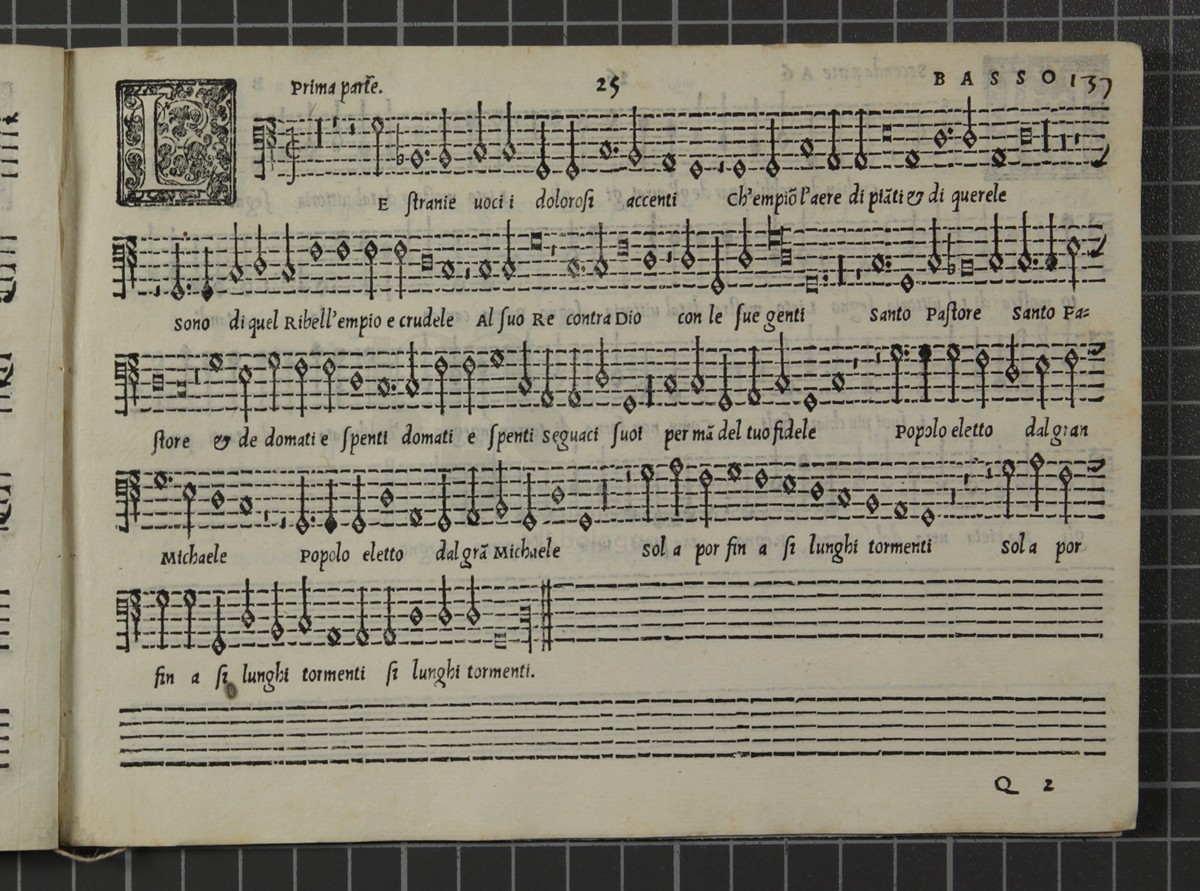 Prima parte. 25 BASSO 137
LE stranie uoci i dolorosi accenti Ch'empiō l'aere di piāti & di querele
sono di quel Ribell'empio e crudele Al suo Re contra Dio con le sue genti Santo Pastore Santo Pa=
store & de domati e spenti domati e spenti seguaci suoi per mā del tuo fidele Popolo eletto dal gran
Michaele Popolo eletto dal grā Michaele sol a por fin a si lunghi tormenti sol a por
fin a si lunghi tormenti si lunghi tormenti.
Q 2